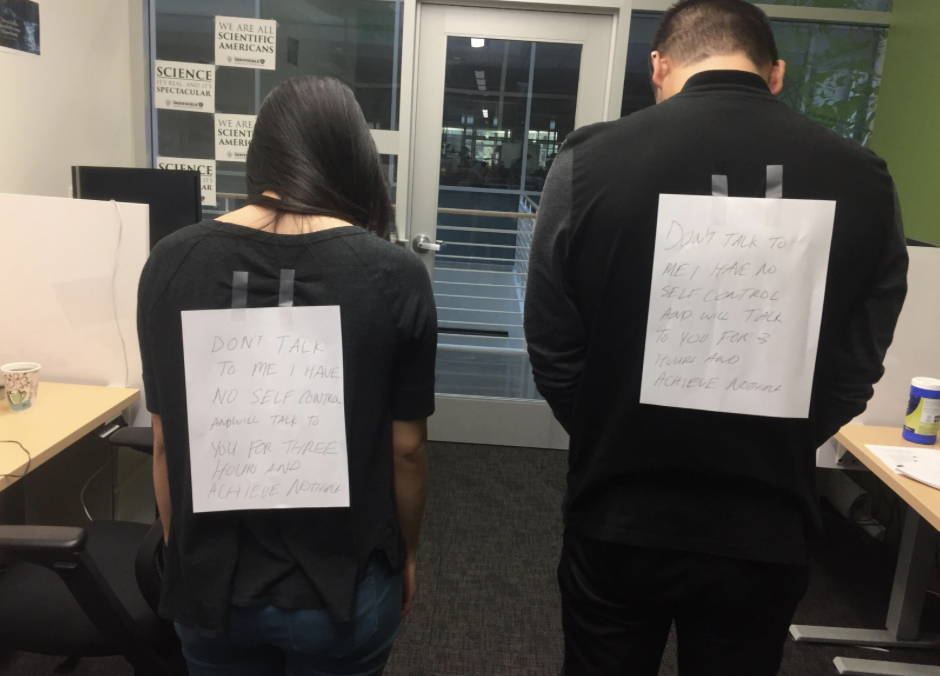 WE ARE ALL
SCIENTIFIC
AMERICANS
SCIENCE
IT'S REAL, AND IT'S
SPECTACULAR
WE ARE
SCIENT
AMERI
SCIENCE
DONT TALK
TO ME I HAVE
NO SELF CONTROL
AND WILL TALK TO
YOU FOR THREE
HOURS AND
ACHIEVE NOTHING
DON'T TALK TO
ME I HAVE NO
SELF CONTROL
AND WILL TALK
TO YOU FOR 3
HOURS AND
ACHIEVE NOTHING